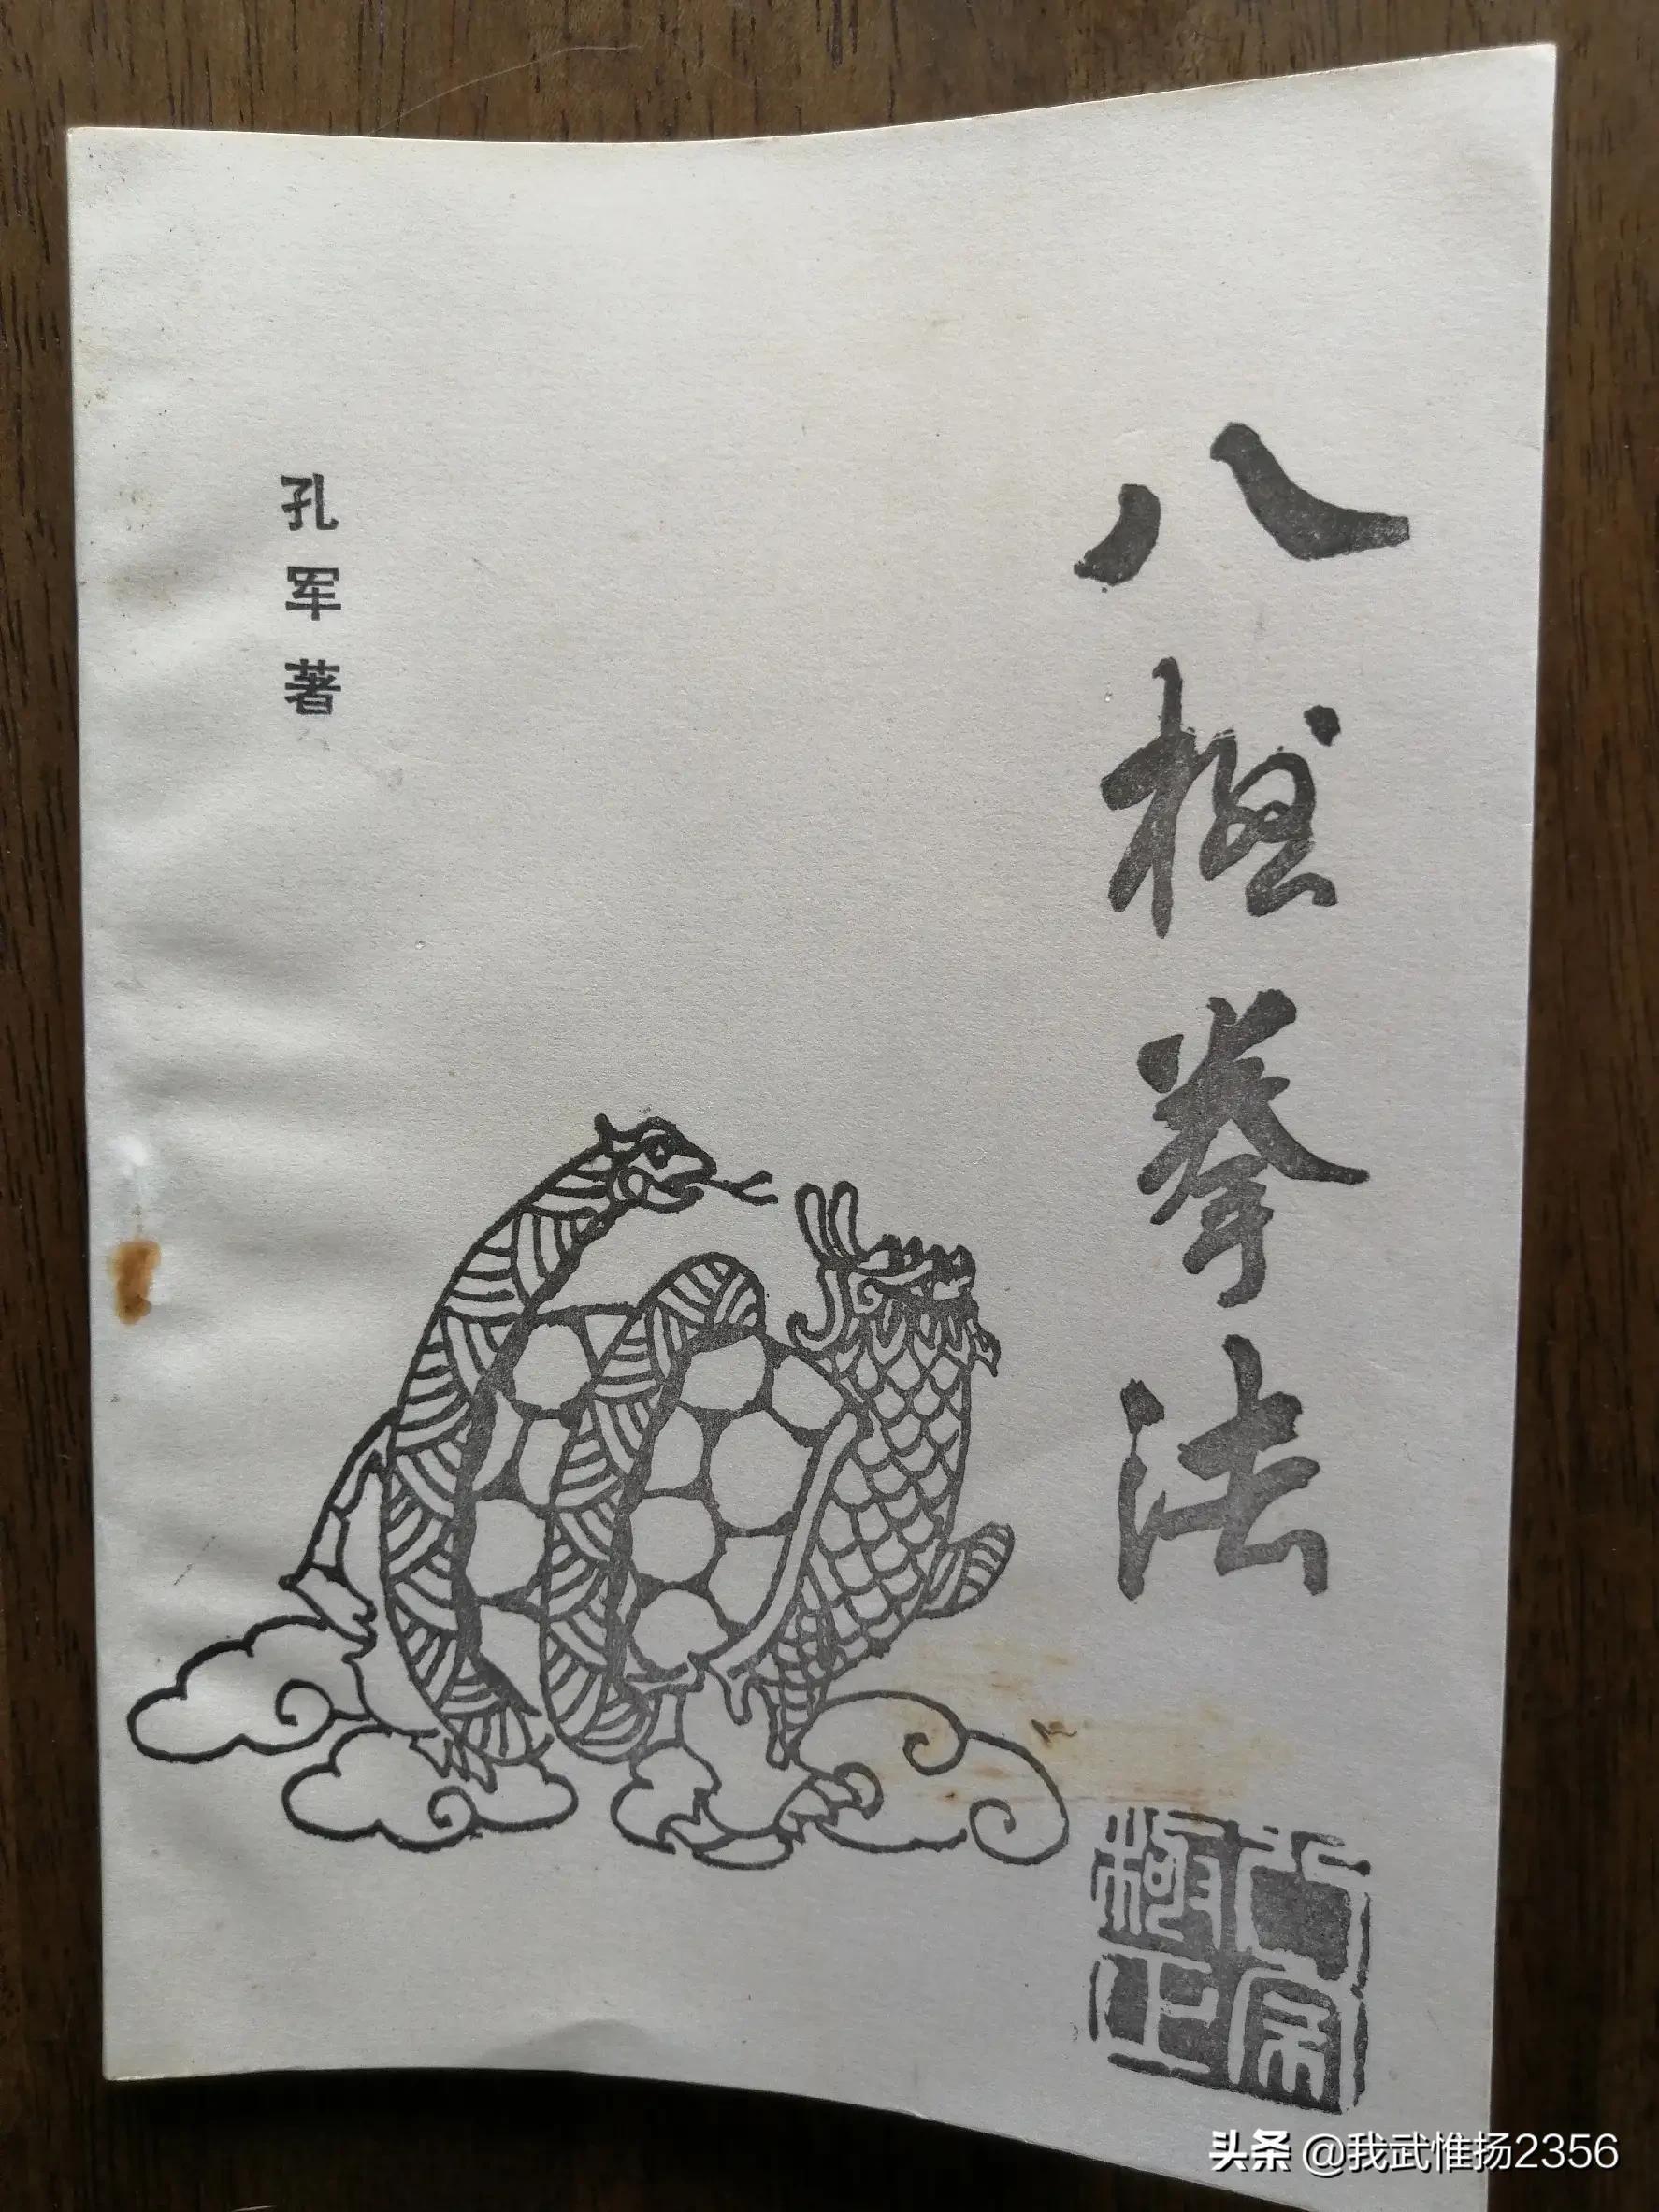 八極拳法
孔军著
头条 @我武惟扬2356